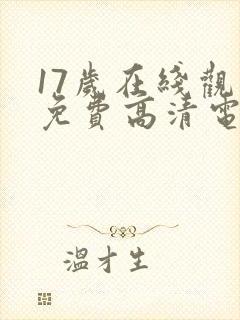 17歲在綫觀
免費高清電
溫才生